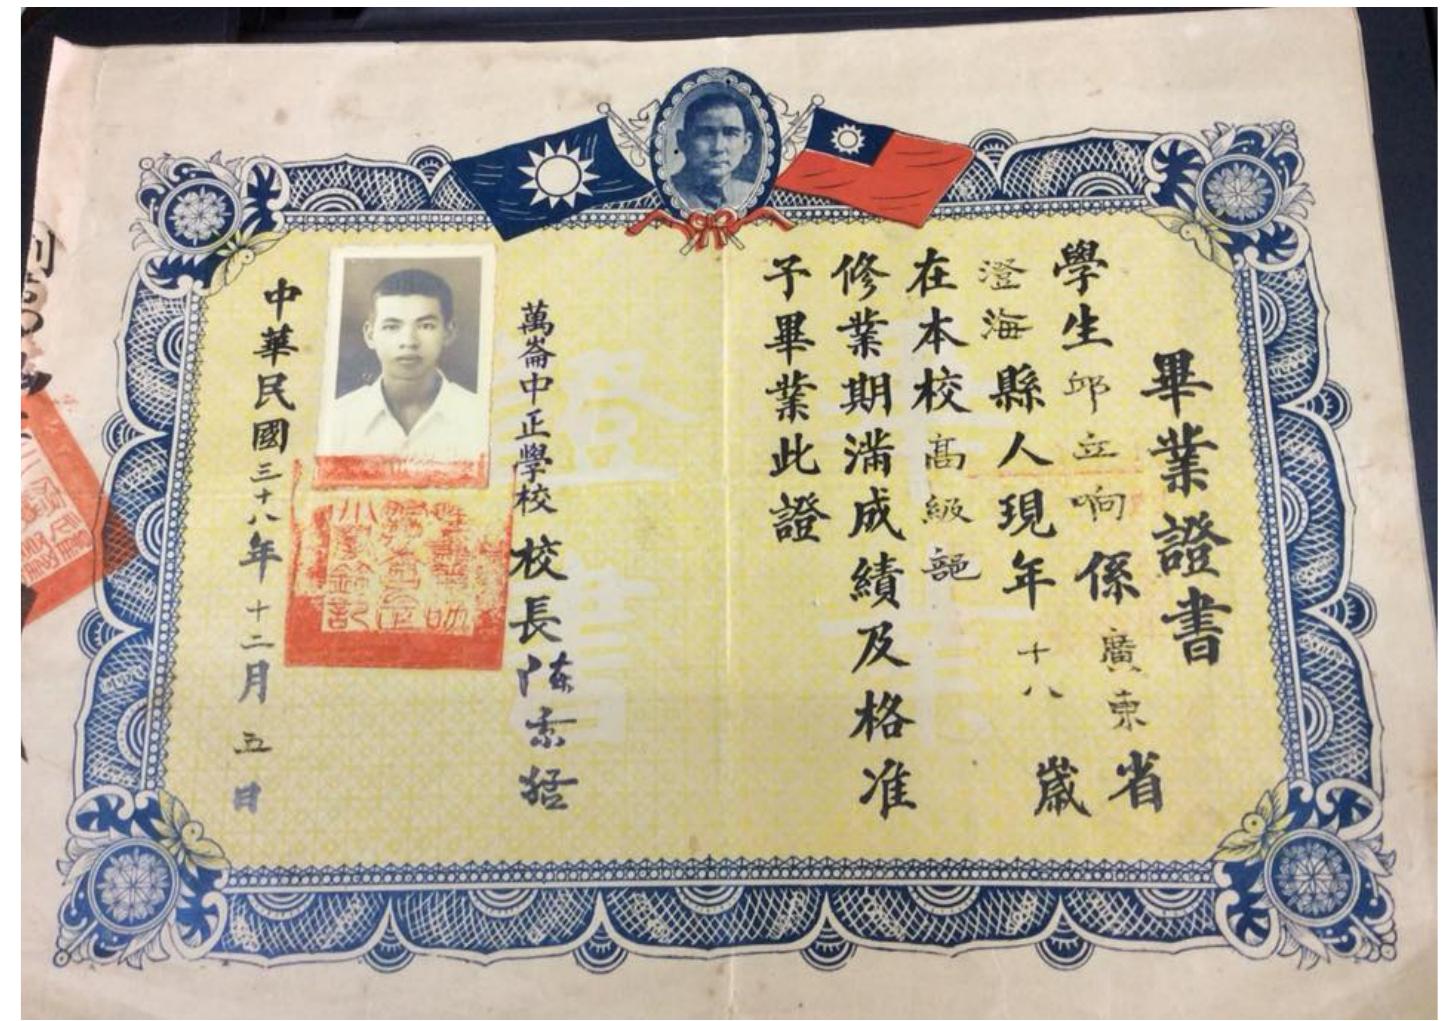 畢業證書
學生邱立响係廣東省
澄海縣人現年十八歲
在本校高級部
修業期滿成績及格准
予畢業此證
萬崙中正學校校長陳
中華民國三十八年十二月五日